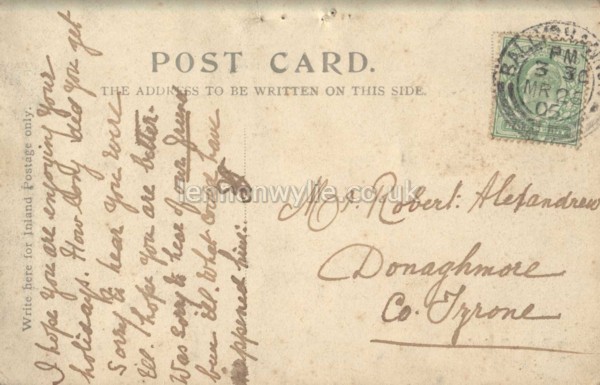 POST CARD.
THE ADDRESS TO BE WRITTEN ON THIS SIDE.
Write here for Inland Postage only.
I hope you are enjoying your
holidays. How did you get
Sorry to hear you were
ill. I hope you are better.
Was sorry to hear of our friend
been ill. What could have
happened him:
PM
5 30
MR 0
05
Mr. Robert: Alexandrew
Donaghmore
Co. Tyrone
lennonwylie.co.uk